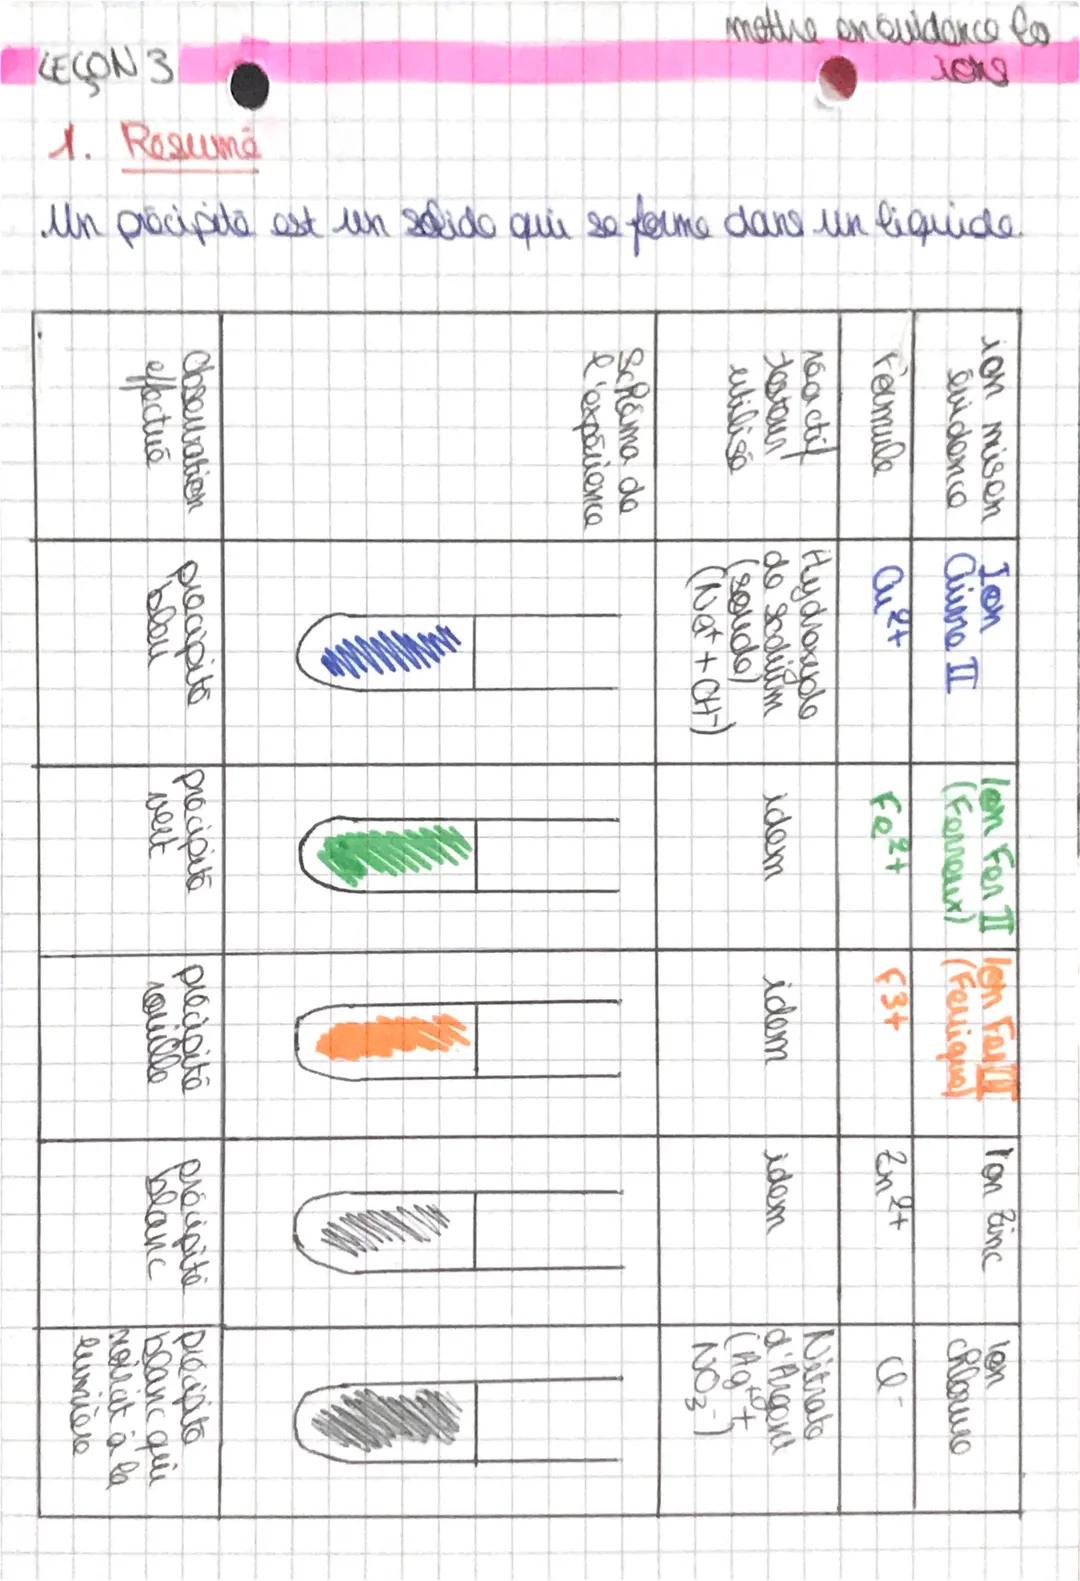 LEÇON 3
mettre en évidence les
ions
1. Résumé
Un précipité est un solide qui se forme dans un liquide.
ion mis en
évidence
Ion
Cuivre II
Ion Fer II
(Ferreux)
Ion Fer III
(Ferrique)
Ion Zinc
Ion
chlorure
Formule
Cu²⁺
Fe²⁺
F³⁺
Zn²⁺
Cl⁻
réactif
testeur
utilisé
Hydroxyde
de sodium
(soude)
(Na⁺ + OH⁻)
idem
idem
idem
Nitrate
d'Argent
(Ag⁺ +
NO₃⁻)
Schéma de
l'expérience
Observation
effectué
précipité
bleu
précipité
vert
précipité
rouille
précipité
blanc
précipité
blanc qui
noircit à la
lumière